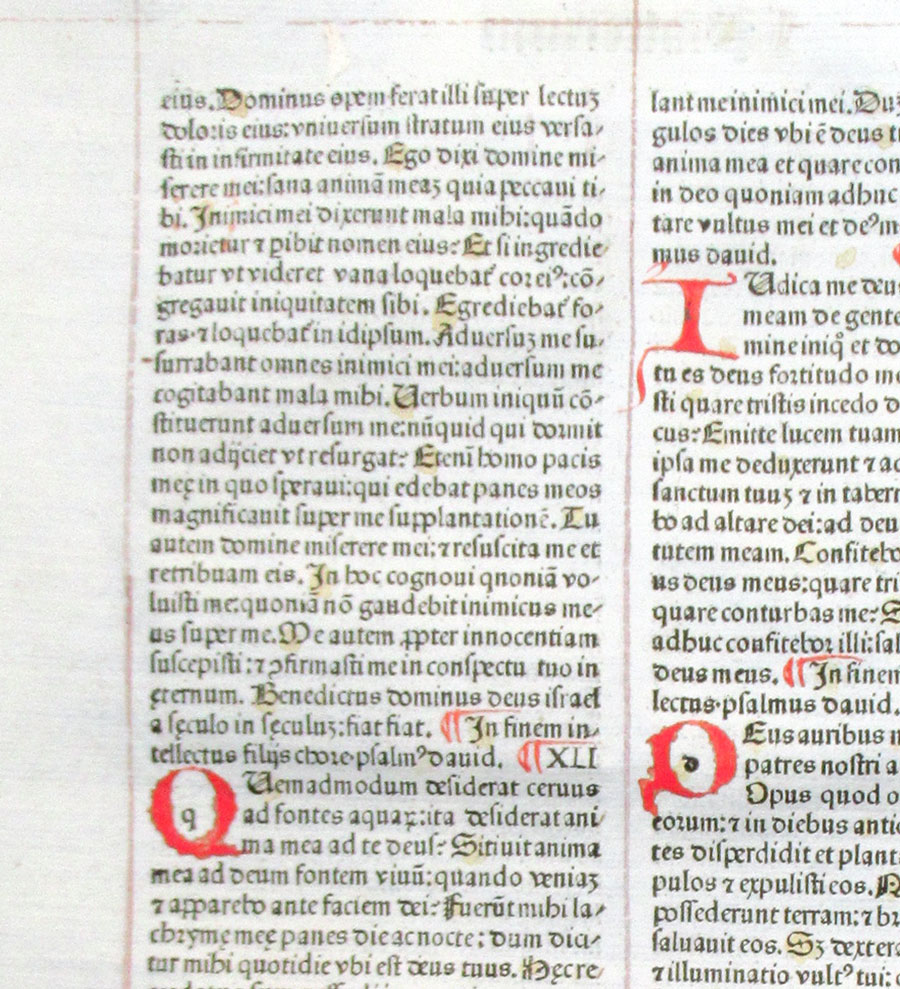 eius. Dominus opem ferat illi super lectuȝ
doloris eius: vniuersum stratum eius versa-
sti in infirmitate eius. Ego dixi domine mi-
serere mei: sana animā meaȝ quia peccaui ti-
bi. Inimici mei dixerunt mala mihi: quādo
morietur ⁊ ꝑibit nomen eius? Et si ingredie-
batur vt videret vana loquebat᷑ cor eiꝰ: cō-
gregauit iniquitatem sibi. Egrediebat᷑ fo-
ras ⁊ loquebat᷑ in idipsum. Aduersuȝ me su-
surrabant omnes inimici mei: aduersum me
cogitabant mala mihi. Uerbum iniquū cō-
stituerunt aduersum me: nūquid qui dormit
non adijciet vt resurgat? Etenī homo pacis
meę in quo speraui: qui edebat panes meos
magnificauit super me supplantationē. Tu
autem domine miserere mei: ⁊ resuscita me et
retribuam eis. In hoc cognoui qnoniā vo-
luisti me: quoniā nō gaudebit inimicus me-
us super me. Me autem ꝓpter innocentiam
suscepisti: ⁊ ꝯfirmasti me in conspectu tuo in
ęternum. Benedictus dominus deus israel
a sęculo in sęculuȝ: fiat fiat. ¶ In finem in-
tellectus filijs chore psalmꝰ dauid. ¶ XLI
QUemadmodum desiderat ceruus
ad fontes aquaꝝ: ita desiderat ani-
ma mea ad te deus? Sitiuit anima
mea ad deum fontem viuū: quando veniaȝ
⁊ apparebo ante faciem dei? Fuerūt mihi la-
chrymę meę panes die ac nocte: dum dici-
tur mihi quotidie vbi est deus tuus. Hęcre-
lant me inimici mei. Duȝ
gulos dies vbi ē deus
anima mea et quare con
in deo quoniam adhuc
tare vultus mei et deꝰ m
mus dauid.
IUdica me deu
meam de gente
mine iniqͦ et do
tu es deus fortitudo me
sti quare tristis incedo
cus? Emitte lucem tuam
ipsa me deduxerunt ⁊
sanctum tuuȝ ⁊ in tabern
bo ad altare dei: ad deu
tutem meam. Confitebo
us deus meus: quare tri
quare conturbas me?
adhuc confitebor illi: sal
deus meus. ¶ In finem
lectus psalmus dauid.
DEus auribus
patres nostri a
Opus quod o
eorum: ⁊ in diebus anti
tes disperdidit et planta
pulos ⁊ expulisti eos.
possederunt terram: ⁊ br
saluauit eos. Sȝ dextera
⁊ illuminatio vultꝰ tui: